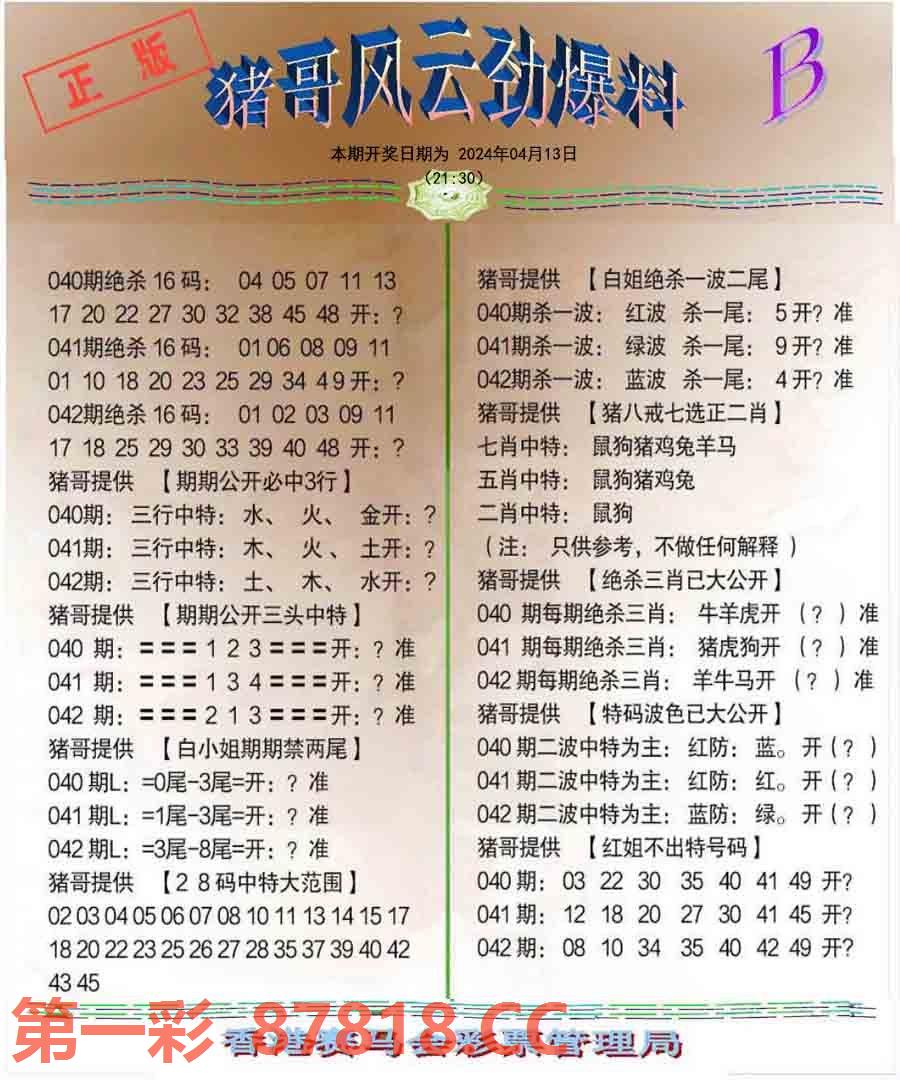 正版
猪哥风云劲爆料
B
本期开奖日期为 2024年04月13日
(21:30)
040期绝杀16码： 04 05 07 11 13
17 20 22 27 30 32 38 45 48 开：?
041期绝杀16码： 01 06 08 09 11
01 10 18 20 23 25 29 34 49开：?
042期绝杀16码： 01 02 03 09 11
17 18 25 29 30 33 39 40 48 开：?
猪哥提供 【期期公开必中3行】
040期：三行中特：水、 火、 金开：?
041期：三行中特：木、 火、 土开：?
042期：三行中特：土、 木、 水开：?
猪哥提供 【期期公开三头中特】
040 期：===1 2 3===开：? 准
041 期：===1 3 4===开：? 准
042 期：===2 1 3===开：? 准
猪哥提供 【白小姐期期禁两尾】
040 期L：=0尾-3尾=开：? 准
041 期L：=1尾-3尾=开：? 准
042 期L：=3尾-8尾=开：? 准
猪哥提供 【28码中特大范围】
02 03 04 05 06 07 08 10 11 13 14 15 17
18 20 22 23 25 26 27 28 35 37 39 40 42
43 45
猪哥提供 【白姐绝杀一波二尾】
040期杀一波： 红波 杀一尾： 5开? 准
041期杀一波： 绿波 杀一尾： 9开? 准
042期杀一波： 蓝波 杀一尾： 4开? 准
猪哥提供 【猪八戒七选正二肖】
七肖中特： 鼠狗猪鸡兔羊马
五肖中特： 鼠狗猪鸡兔
二肖中特： 鼠狗
(注： 只供参考，不做任何解释)
猪哥提供 【绝杀三肖已大公开】
040 期每期绝杀三肖： 牛羊虎开 (?)准
041 期每期绝杀三肖： 猪虎狗开 (?)准
042 期每期绝杀三肖： 羊牛马开 (?)准
猪哥提供 【特码波色已大公开】
040 期二波中特为主：红防：蓝。开(?)
041 期二波中特为主：红防：红。开(?)
042 期二波中特为主：蓝防：绿。开(?)
猪哥提供 【红姐不出特号码】
040期：03 22 30 35 40 41 49 开?
041期：12 18 20 27 30 41 45 开?
042期：08 10 34 35 40 42 49 开?
第一彩 87818.CC
香港赛马会彩票管理局